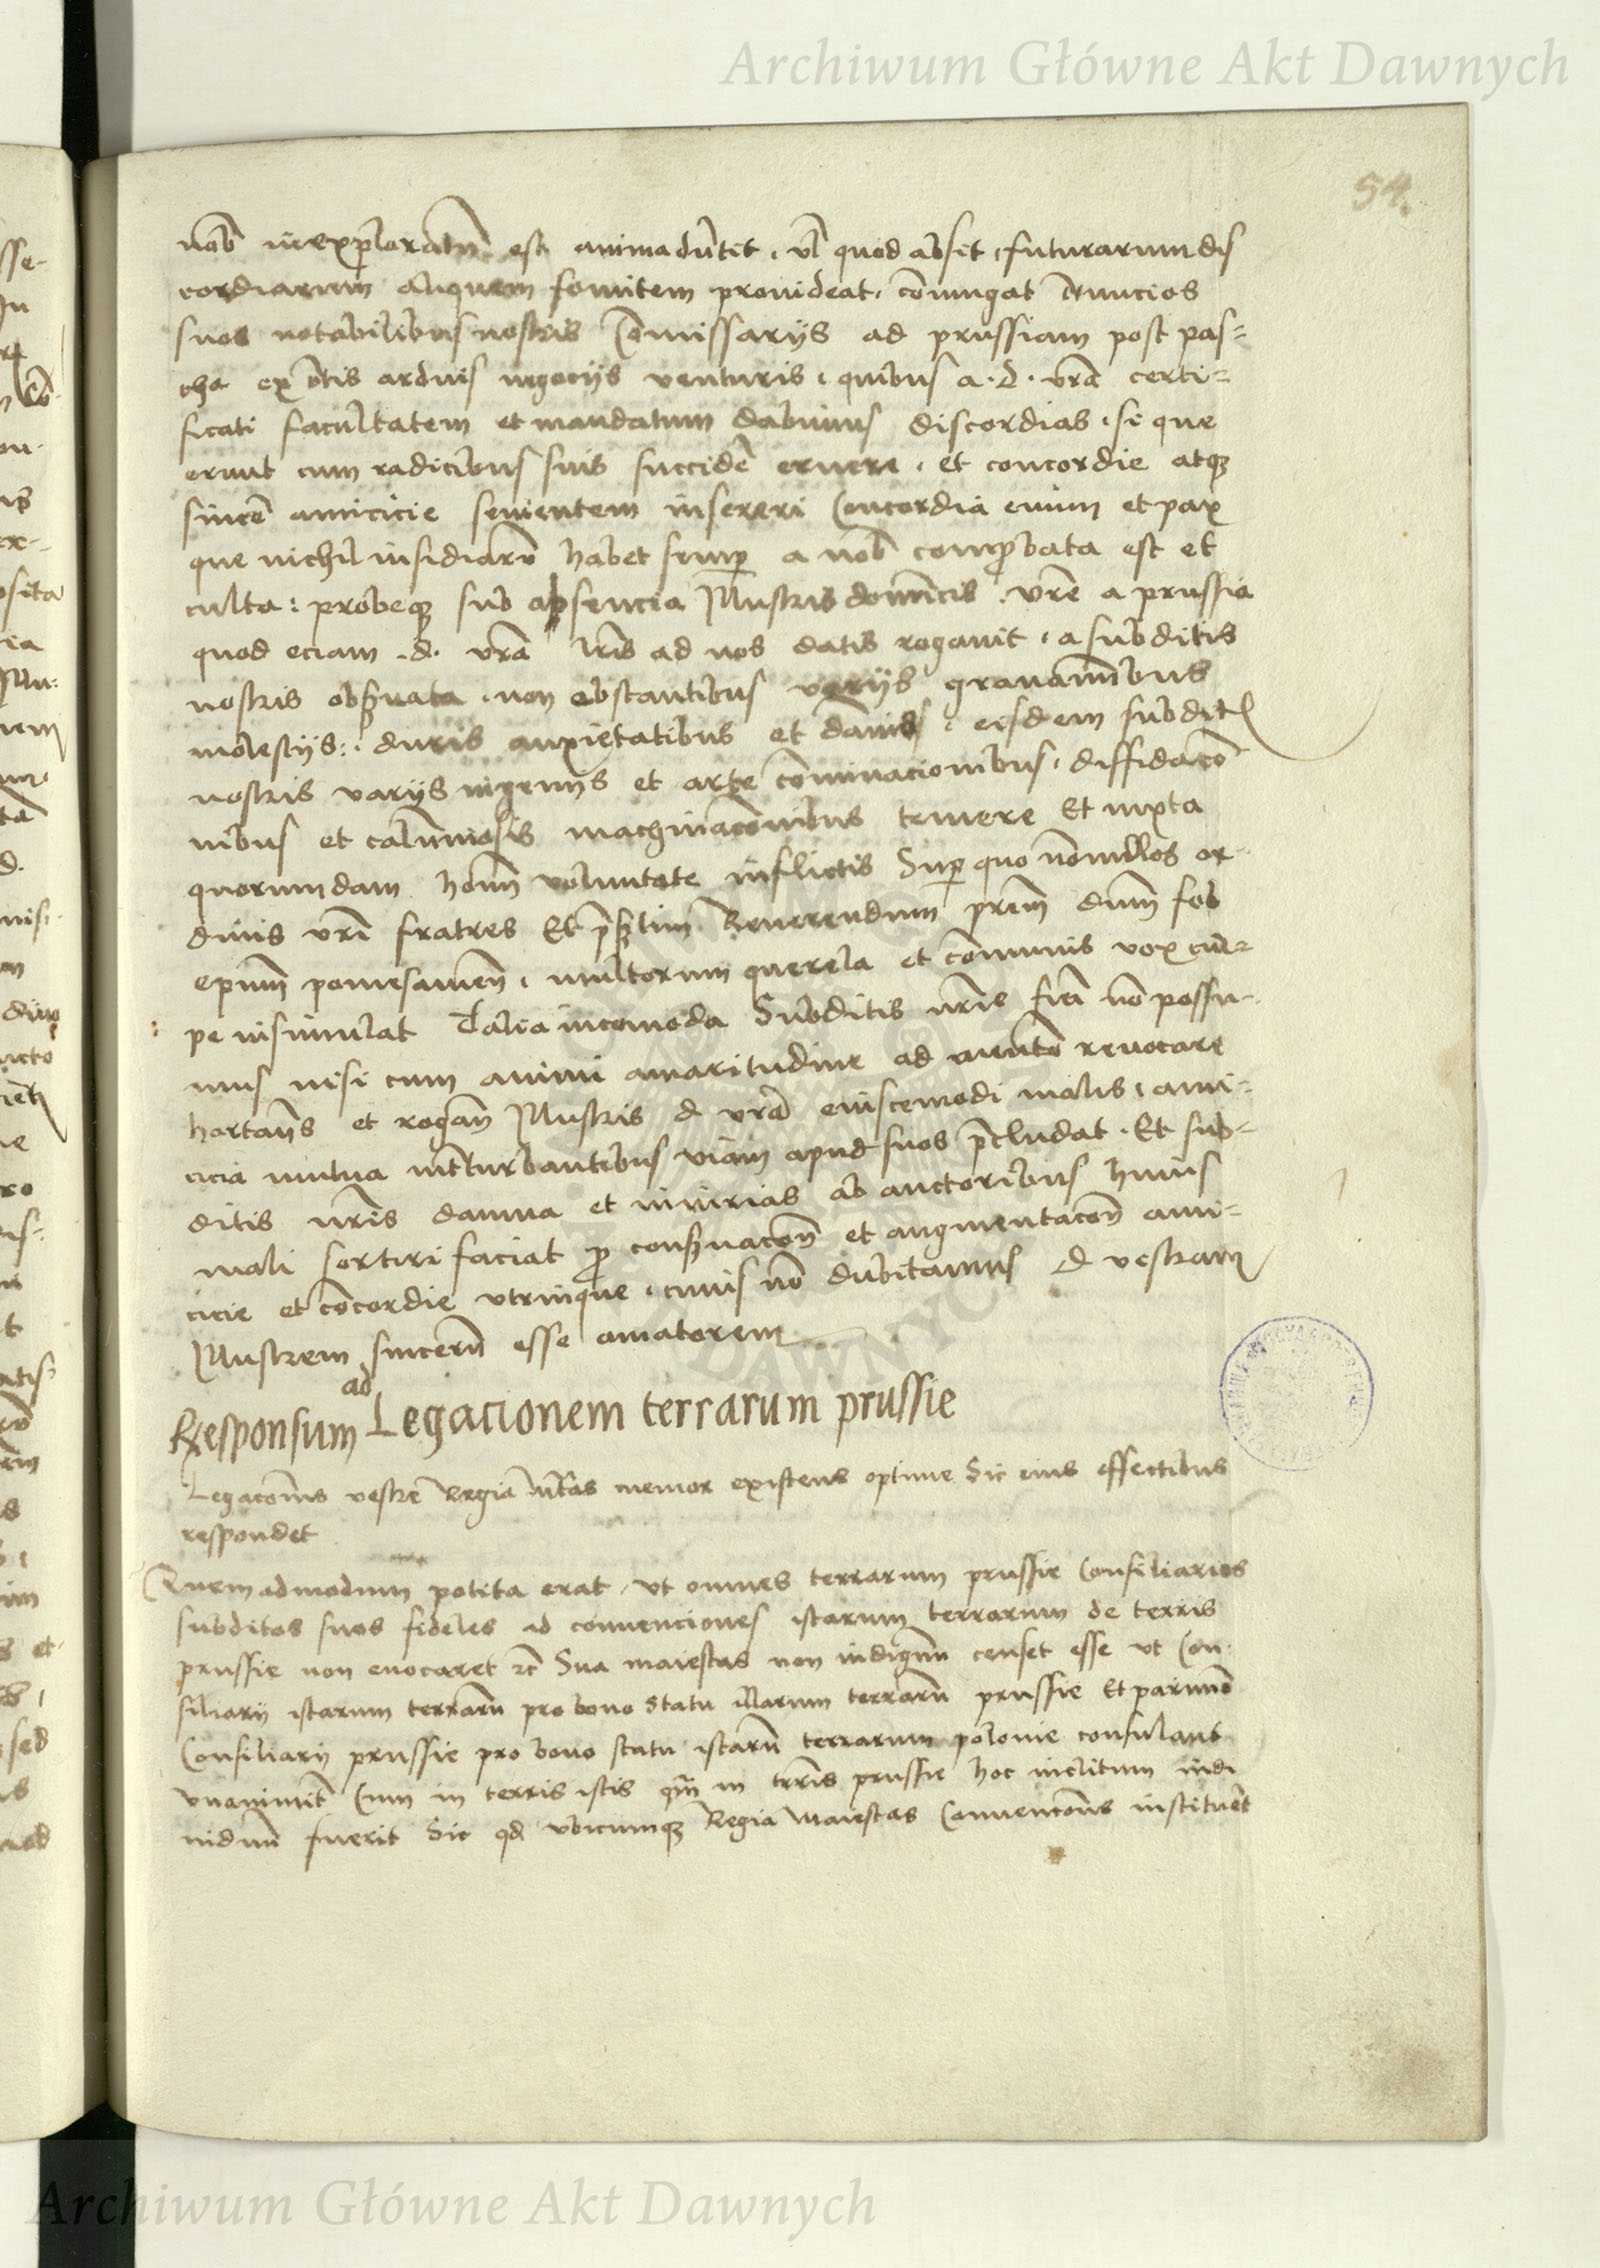 Archiwum Główne Akt Dawnych
54.
nob inexploratū est animadūtit . vl quod absit , futurarum dis
cordiarum aliquem fomitem provideat , coniungat nuncios
suos notabilibus nostris Comissarijs ad prussiam post pas=
cha ex ctis arduis negocijs venturis , quibus a . d . vra certi=
ficati facultatem et mandatum dabimus discordias , si que
erunt cum radicibus suis succidē eruere , et concordie atq
sincē amicicie sementem insereri Concordia enim et pax
que nichil insidiarū habet semp a nob comprobata est et
culta : probeq sub absencia Illustris domīcis . vrē a prussia
quod eciam . d . vrā lris ad nos datis rogavit , a subditis
nostris observata , non obstantibus varijs gravaminibus
molestijs : duris anxietatibus et damīs , eisdem subditis
nostris varijs ingenijs et arte cominacionibus , diffidaco
nibus et calumniosis machinaconibus temere Et iuxta
quorumdam homī voluntate inflictis Sup quo nonnullos or
dinis vri fratres Et prsertim Reverendum prem dnm Job
epum pomesanien , multorum querela et comunis vox cul=
pe insimulat Talia incomoda Subditis nris non possu=
mus nisi cum animi amaritudine ad mentē revocare
hortans et rogan Illustris d vra eiuscemodi malis , ami=
cicia mutua inturbantibus viam apud suos precludat . Et sub=
ditis nris damna et iniurias ab auctoribus huius
mali sortiri faciat p conservacon et augmentacon ami=
cicie et concordie utrinque , cuius no dubitamus d vestram
Illustrem sincerū esse amatorem
Responsum ad Legacionem terrarum prussie
Legaconis vestre Regia mtas memor existens optime Sic eius effectibus
respondet
Quemadmodum petita erat , ut omnes terrarum prussie Consiliarios
subditos suos fideles ad convenciones istarum terrarum de terris
prussie non evocaret etc Sua maiestas non indignū censet esse ut Con
siliarij istarum terrarū pro bono statu illarum terrarū prussie Et parimō
Consiliarij prussie pro bono statu istarū terrarum polonie consulant
unanimit Cum in terris istis qm in terris prussie hoc inclitum indi
viduū fuerit Sic qd ubicumq Regia Maiestas Convencons instituet
Archiwum Główne Akt Dawnych